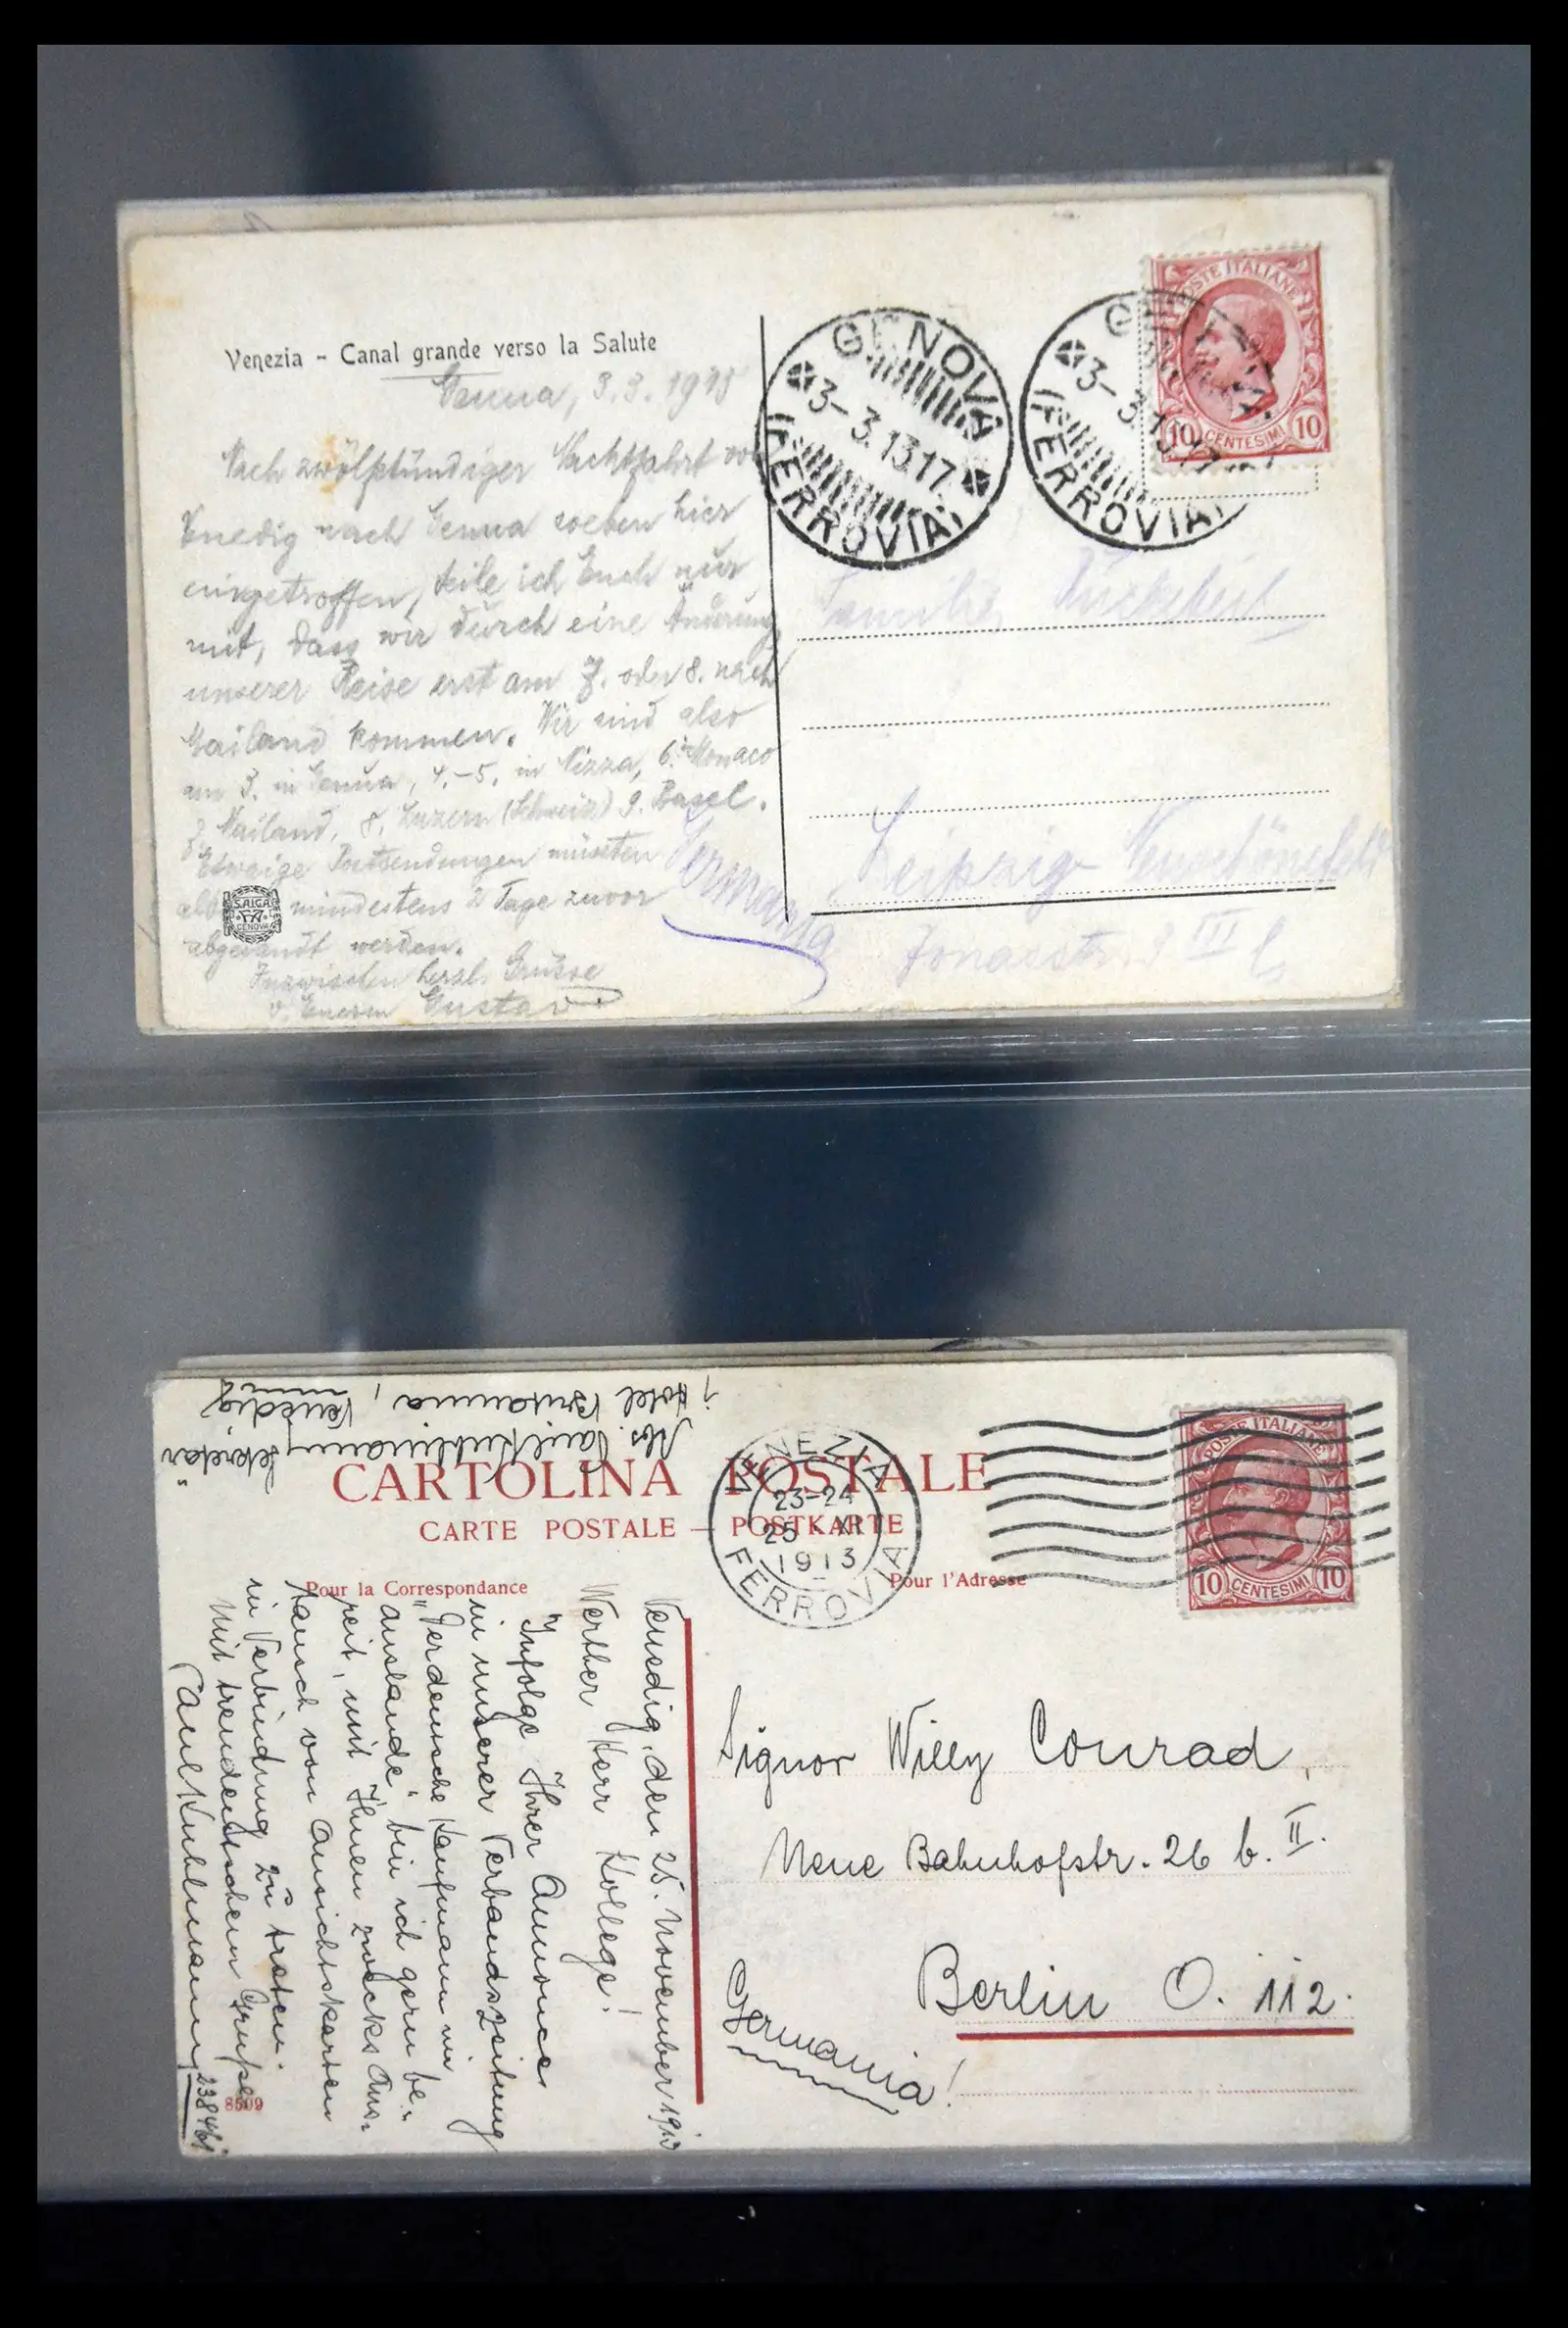 Venezia - Canal grande verso la Salute
Genua, 3.3.1913
Nach zwölfstündiger Nachtfahrt von
Venedig nach Genua soeben hier
eingetroffen, teile ich Euch nur
mit, dass wir durch eine Änderung
unserer Reise erst am 7. oder 8. nach
Mailand kommen. Wir sind also
am 3. in Genua, 4.-5. in Nizza, 6. in Monaco
7. Mailand, 8. Luzern (Schweiz) 9. Basel.
Etwaige Postsendungen müssten
also mindestens 2 Tage zuvor
abgesandt werden.
Inzwischen herzl. Grüsse
v. Eurem Gustav
SAIGA
GENOVA
GENOVA
3-3.13.17
(FERROVIA)
GENOVA
3-3.13.17
(FERROVIA)
POSTE ITALIANE
10 CENTESIMI 10
Familie
Leipzig-Neuschönefeld
Jonasstr. III l
Germania
Abs. Paul Kuhlmann, Sekretär
i/ Hotel Britannia, Venedig
CARTOLINA POSTALE
CARTE POSTALE — POSTKARTE
Pour la Correspondance
Pour l'Adresse
VENEZIA
23-24
25 XI
1913
FERROVIA
POSTE ITALIANE
10 CENTESIMI 10
Venedig, den 25. November 1913
Werther Herr Kollege!
Infolge Ihrer Annonce
in unserer Verbandszeitung
"Der deutsche Kaufmann im
Auslande" bin ich gern be-
reit, mit Ihnen zwecks Aus-
tausch von Ansichtskarten
in Verbindung zu treten.
Mit treudeutschem Gruße
Paul Kuhlmann
8509
Signor Willy Conrad,
Neue Bahnhofstr. 26 b. II.
Berlin O. 112.
Germania!